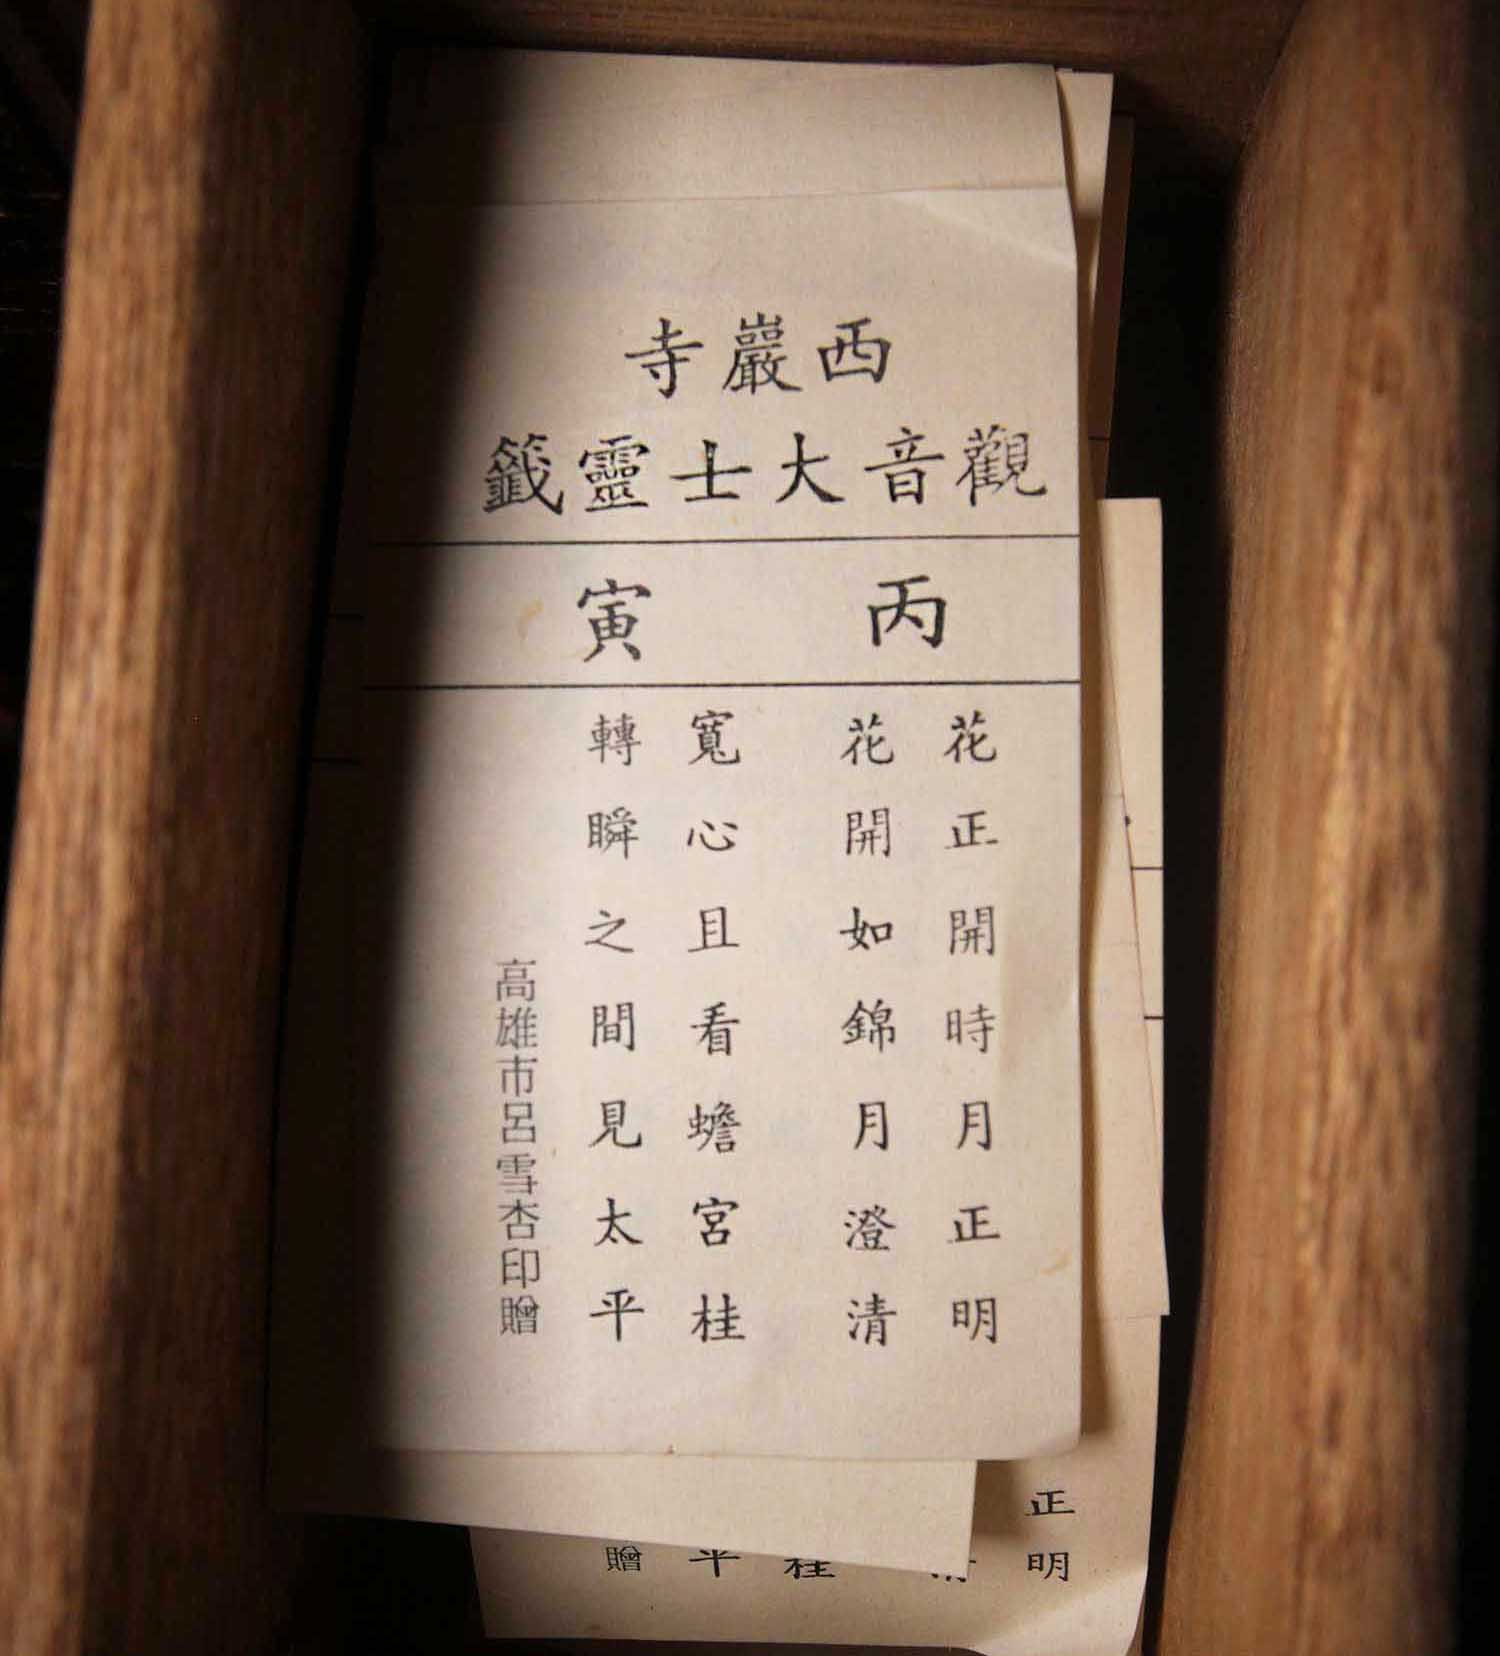 西巖寺
觀音大士靈籤
丙寅
花正開時月正明
花開如錦月澄清
寬心且看蟾宮桂
轉瞬之間見太平
高雄市呂雪杏印贈
正明
清
桂
平
贈